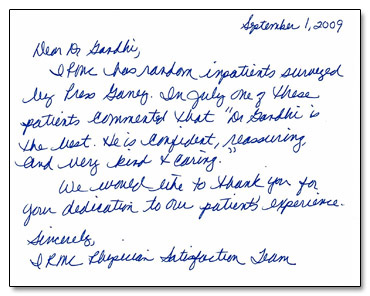 September 1, 2009
Dear Dr Gandhi,
IRMC has random inpatients surveyed
by Press Ganey. In July one of these
patients commented that "Dr Gandhi is
the best. He is confident, reassuring,
and very kind & caring."
We would like to thank you for
your dedication to our patient's experience.
Sincerely,
IRMC Physician Satisfaction Team